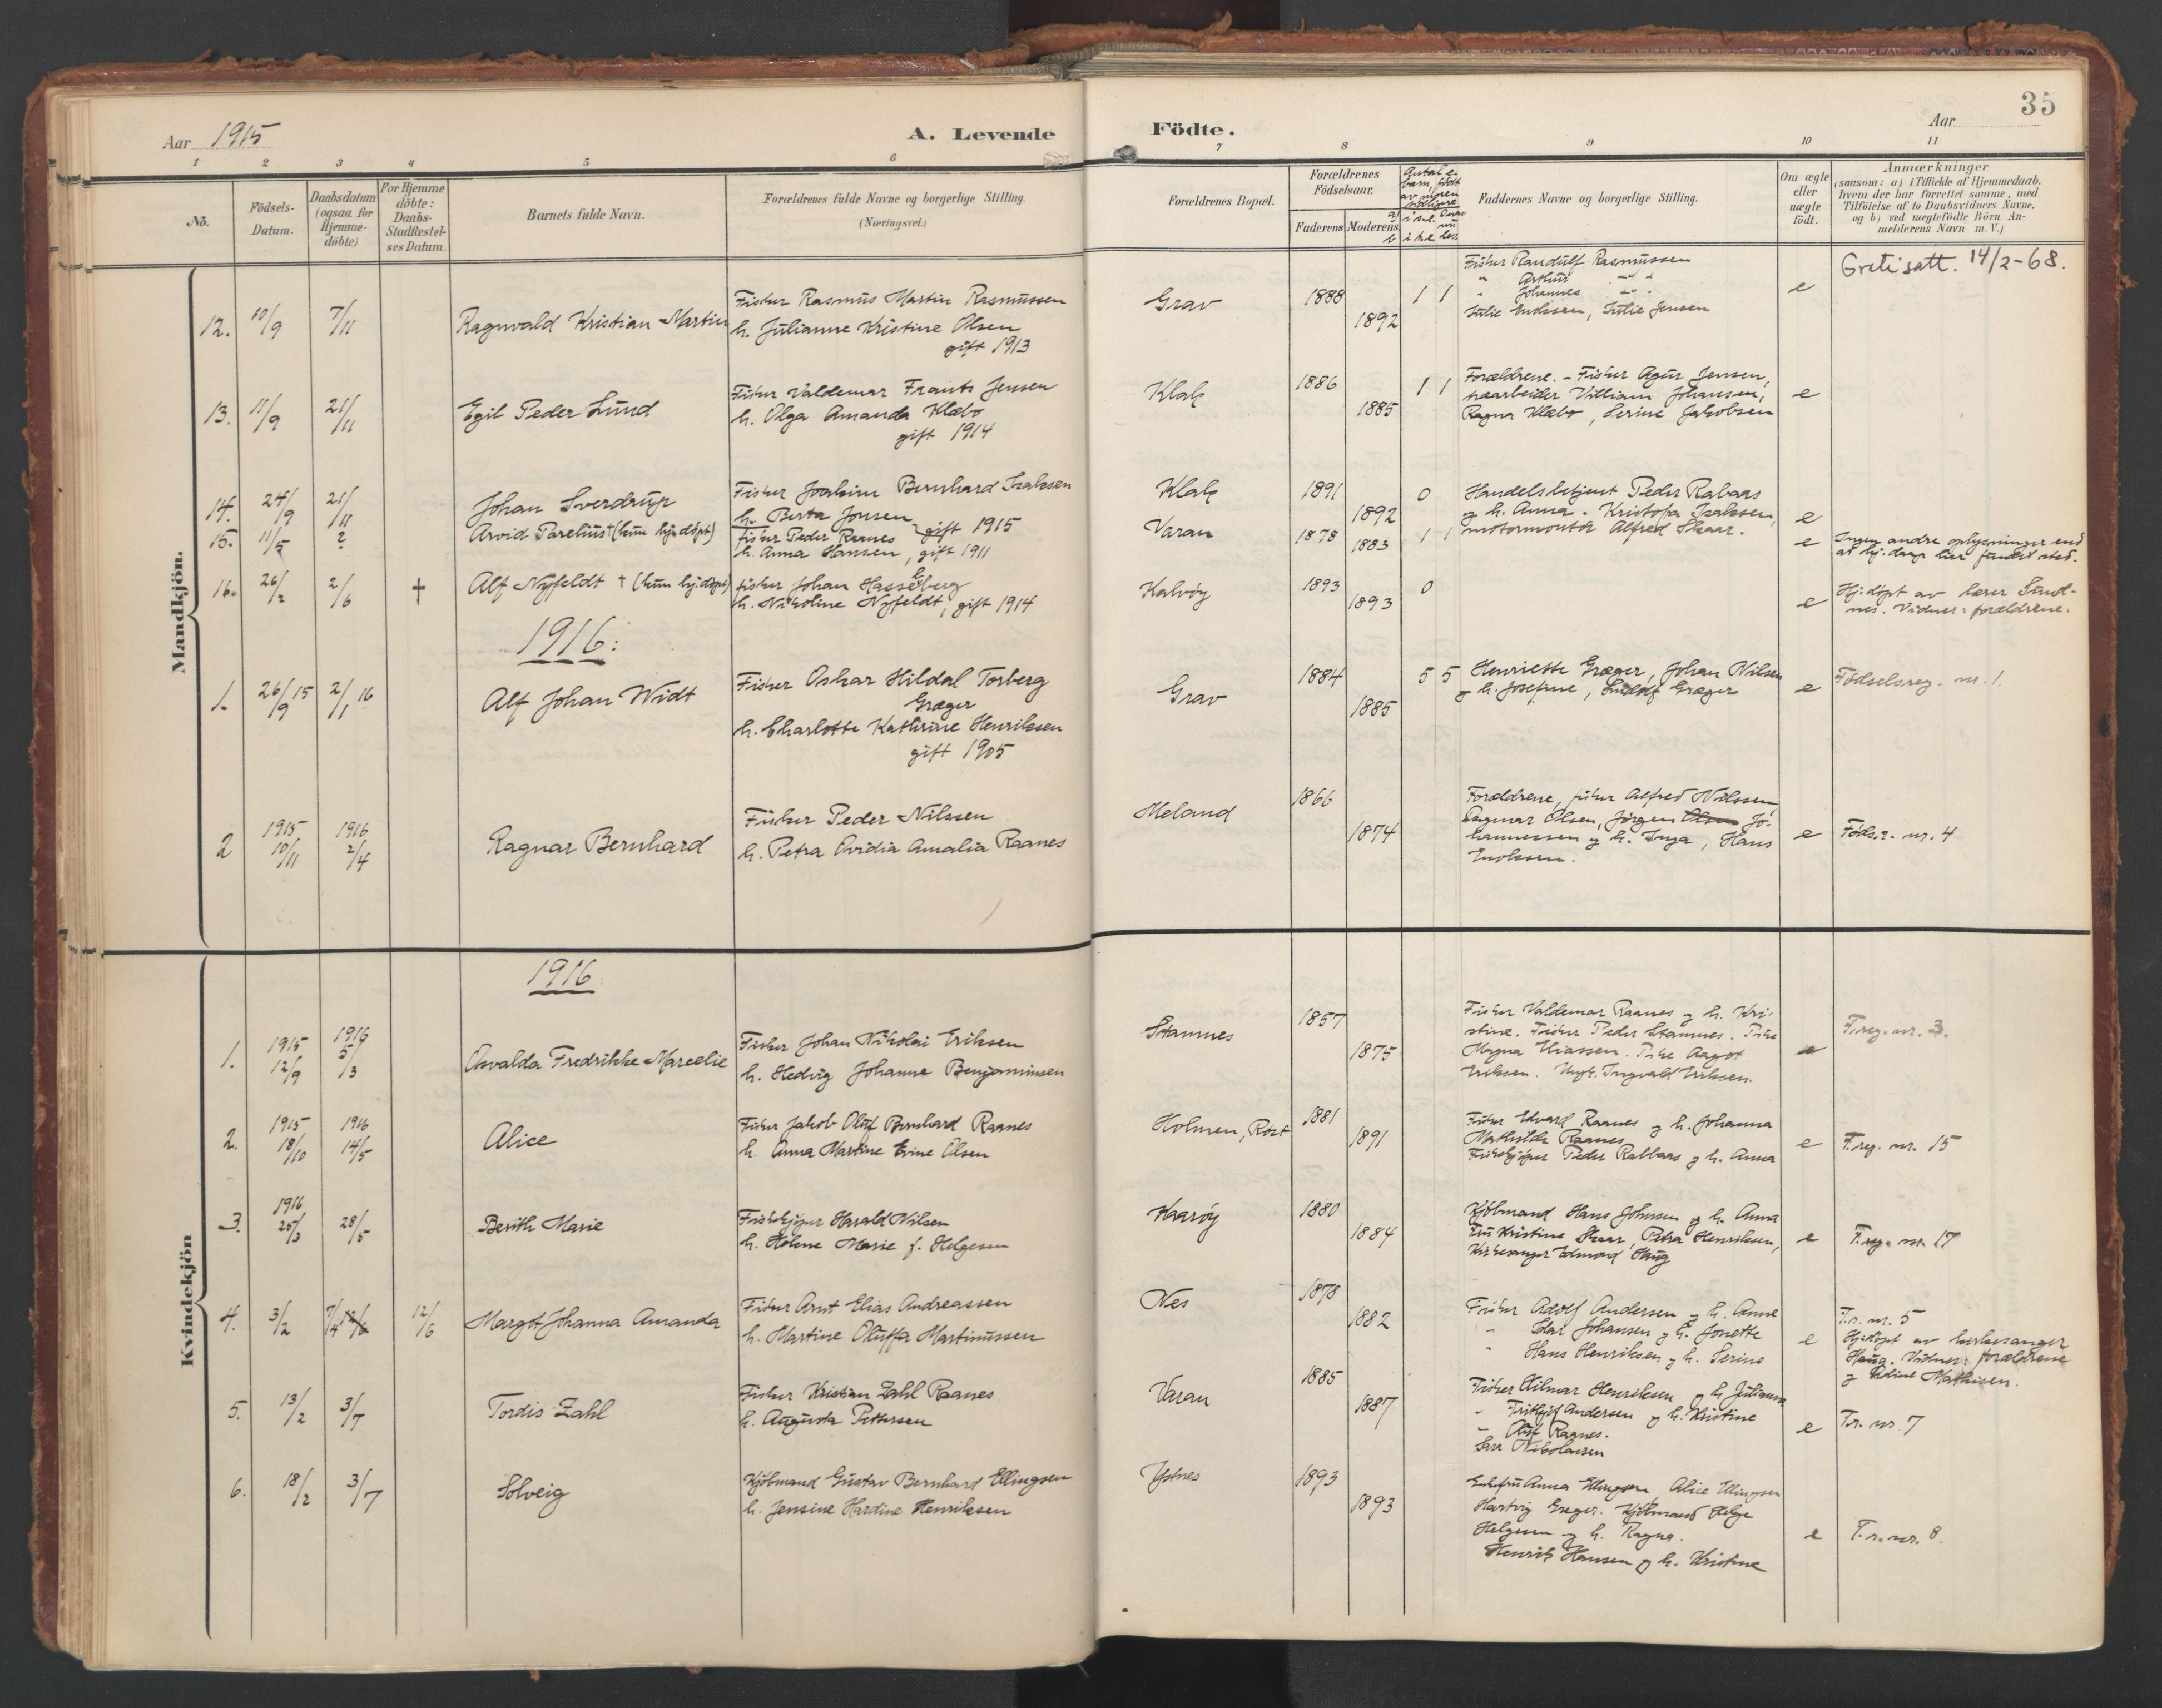 Aar 1915
A. Levende Födte.
Aar
35
1 2 3 4 5 6 7 8 9 10 11
No.
Födsels-Datum.
Daabsdatum (ogsaa for Hjemme-döbte)
For Hjemme döbte: Daabs-Stadfæstel-ses Datum.
Barnets fulde Navn.
Forældrenes fulde Navne og borgerlige Stilling.
(Næringsvei.)
Forældrenes Bopæl.
Forældrenes Födselsaar.
Faderens Moderens
Faddernes Navne og borgerlige Stilling.
Om ægte eller uægte födt.
Anmærkninger
(saasom: a) i Tilfælde af Hjemmedaab.
hvem der har forrettet samme, med
Tilföielse af to Daabsvidners Navne.
og b) ved uegtefödte Börn An-
melderens Navn m. V.)
Mandkjön.
12. 10/9 7/11 Ragnvald Kristian Martin
Fisker Rasmus Martin Rasmussen
h. Julianne Kristine Olsen
gift 1913
Grav 1888 1892 1 1
Fisker Randulf Rasmussen
" Arthur
" Johannes
Julie Jensen
e
14/2-68.
13. 11/9 21/11 Egil Peder Lund
Fisker Valdemar Frants Jensen
h. Olga Amanda Klæbo
gift 1914
Klak 1886 1885 1 1
Forældrene. - Fisker Agur Jensen,
Villiam Johansen,
Ragna Klæbo, Serine Jakobsen
e
14. 24/9 21/11 Johan Sverdrup
Fisker Joakim Bernhard Isaksen
h. Berta Jensen gift 1915
Klak 1891 1892 0
Handelsbetjent Peder Rabaas
og h. Anna. Kristofa Isaksen,
motormontör Alfred Skaar.
e
15. 11/5 ? Arvid Parelius † (kun hj.döpt)
fisker Peder Raanes
h. Anna Hansen, gift 1911
Varan 1878 1883 1 1
e
Ingen andre oplysninger end
at hj.daap har fundet sted.
16. 26/2 2/6 † Alf Nyfeldt † (kun hj.döpt)
fisker Johan Hasselberg
h. Nikoline Nyfeldt, gift 1914
Kalvöy 1893 1893 0
e
Hj.döpt av lærer Sand-
nes. Vidner: forældrene.
1916:
1. 26/9 15 2/1 16 Alf Johan Widt
Fisker Oskar Hildal Torberg
Græger
h. Charlotte Kathrine Henriksen
gift 1905
Grav 1884 1885 5 5
Henriette Græger, Johan Nilsen
og h. Josefine, Ludolf Græger
e
Födselsreg. nr. 1.
2 1915 10/11 1916 2/4 Ragnar Bernhard
Fisker Peder Nilssen
h. Petra Ovidia Amalia Raanes
Meland 1866 1874
Forældrene, fisker Alfred Nilssen
Dagmar Olsen, Jörgen Olsen Jo-
hannessen og h. Inga, Hans
Enoksen.
e
Föds.r. nr. 4
Kvindekjön
1916
1. 1915 12/9 1916 5/3 Osvalda Fredrikke Marcelie
Fisker Johan Nikolai Eriksen
h. Hedvig Johanna Benjaminsen
Stamnes 1857 1875
Fisker Valdemar Raanes og h. Kri-
stine. Fisker Peder Stamnes. Pike
Magna Eliassen. Pike Aagot
Eriksen. Ungk. Ingvald Eriksen.
e
F.reg. nr. 3.
2. 1915 18/10 1916 14/5 Alice
Fisker Jakob Oluf Bernhard Raanes
h. Anna Martine Evine Olsen
Holmen, Röst 1881 1891
Fisker Edvard Raanes og h. Johanna
Mathilde Raanes
Fiskekjöper Peder Rabbaas og h. Anna
e
F.reg. nr. 15
3. 1916 25/3 28/5 Berith Marie
Fiskekjöper Harald Nilsen
h. Helene Marie f. Helgesen
Haaröy 1880 1884
Kjöbmand Hans Johnsen og h. Anna
Fru Kristine Skaar, Petra Henriksen,
Kirkesanger Edmond Haug
e
F.reg. nr. 17
4. 3/2 7/4 12/6 12/6 Margot Johanna Amanda
Fisker Arnt Elias Andreassen
h. Martine Oluffa Martinussen
Nes 1878 1882
Fisker Adolf Andersen og h. Anne
" Edar Johansen og h. Jonette
" Hans Henriksen og h. Serine
e
F.r. nr. 5
Hj.döpt av kirkesanger
Haug. Vidner: forældrene
og Mathisen.
5. 13/2 3/7 Tordis Zahl
Fisker Kristian Zahl Raanes
h. Augusta Pettersen
Varan 1885 1887
Fisker Hilmar Henriksen og h. Julianna
" Fritjof Andersen og h. Kristine
" Oluf Raanes.
Sara Nikolaisen
e
F.r. nr. 7
6. 18/2 3/7 Solveig
Kjöbmand Gustav Bernhard Ellingsen
h. Jensine Hardine Henriksen
Ystnes 1893 1893
Enkefru Anna Ellingsen, Alice Ellingsen
Hartvig Greger. Kjöbmand Helge
Helgesen og h. Ragna.
Henrik Hansen og h. Kristine
e
F.r. nr. 8.